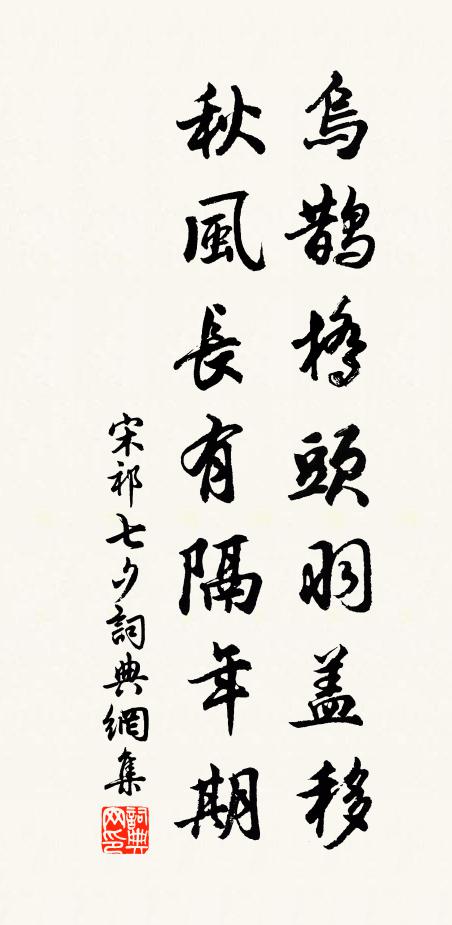 烏鵲橋頭羽盖移
秋風長有隔年期
宋祁七夕詞典網集
詞典网印